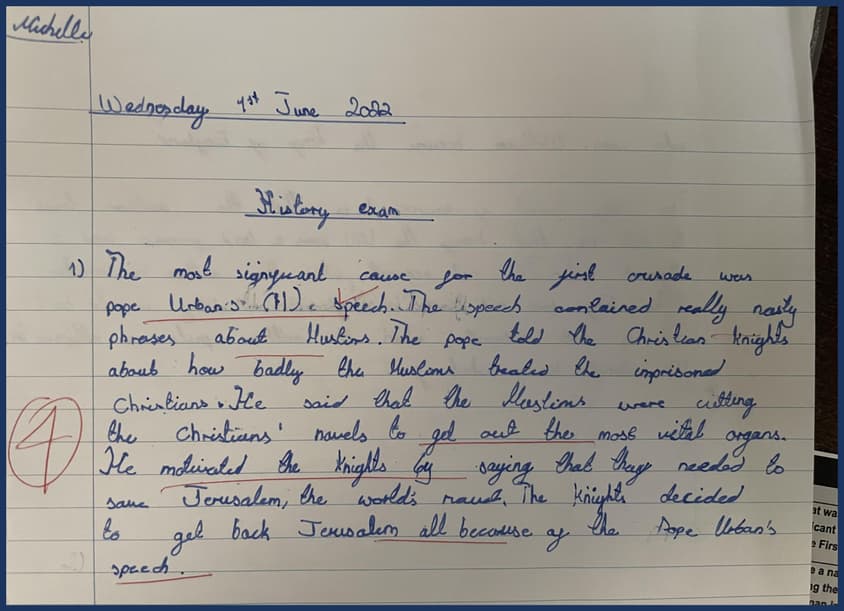 Michelle
Wednesday 1st June 2022
History exam
1) The most signyucant cause for the first crusade was
pope Urban's (II) speech. The speech contained really nasty
phrases about Muslims. The pope told the Christian knights
about how badly the Muslims treated the imprisoned
Christians. He said that the Muslims were cutting
the Christians' navels to get out the most vital organs.
He motivated the knights by saying that they needed to
save Jerusalem, the world's navel. The knights decided
to get back Jerusalem all because of the Pope Urban's
speech.
4
at wa
icant
e Firs
e a na
ng the